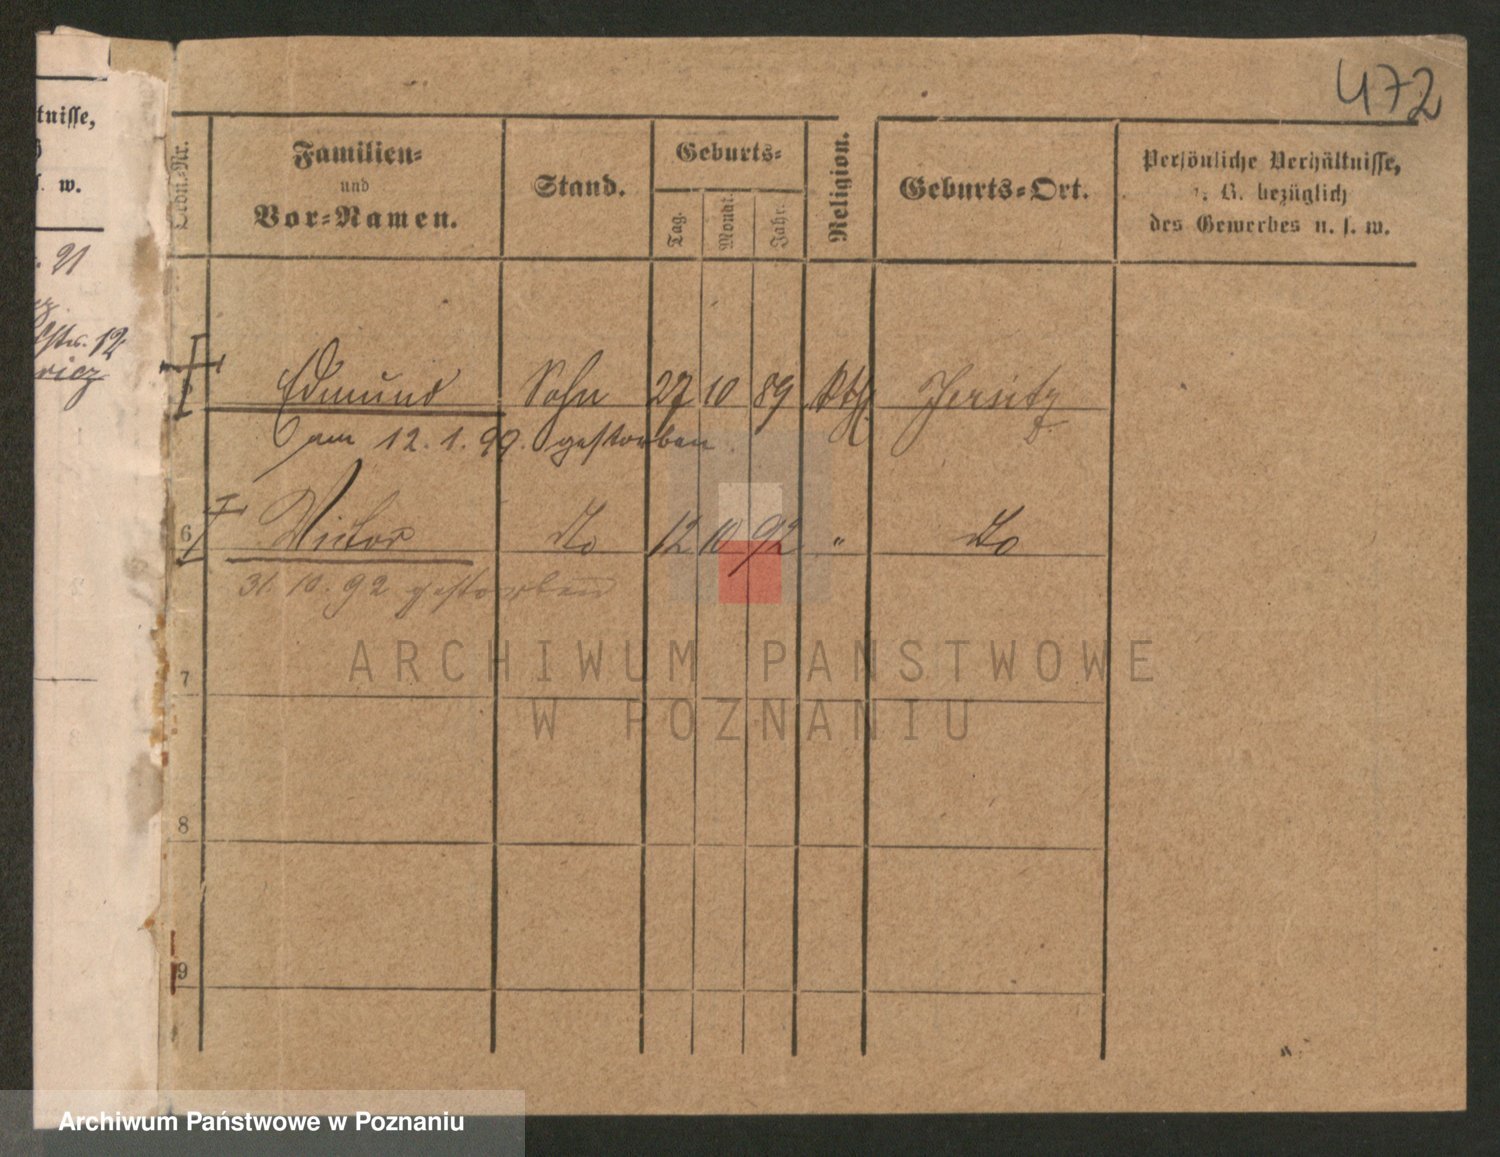 472
tnisse,
s. w.
Ordn.-Nr.
Familien-
und
Vor-Namen.
Stand.
Geburts-
Tag.
Monat.
Jahr.
Religion.
Geburts-Ort.
Persönliche Verhältnisse,
z. B. bezüglich
des Gewerbes u. s. w.
21
12
Edmund Sohn 27 10 89 kth Jersitz
am 12.1.99. gestorben
6 Victor do 12 10 92 " do
31.10.92 gestorben
7
8
9
ARCHIWUM PAŃSTWOWE
W POZNANIU
Archiwum Państwowe w Poznaniu